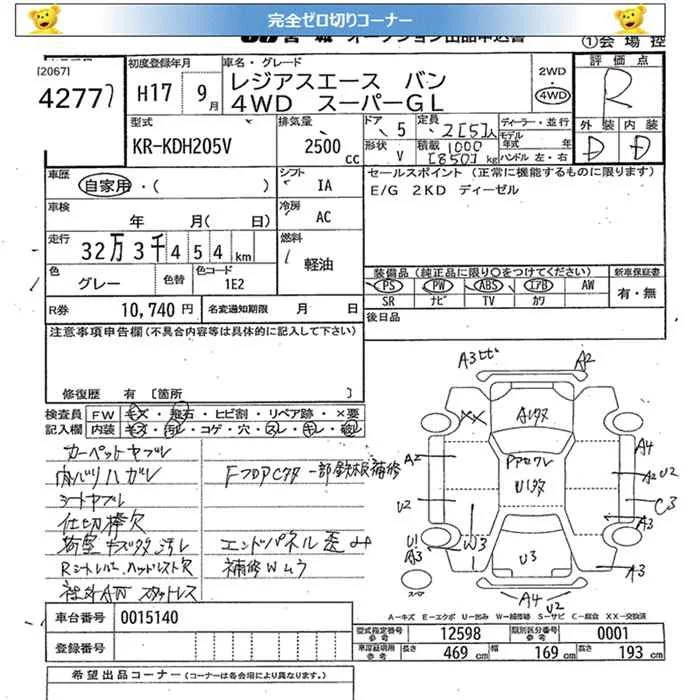 完全ゼロ切りコーナー
宮城 オークション出品申込書 ①会場控
[2067]
42777
初度登録年月 H17 9月
車名・グレード
レジアスエース バン
4WD スーパーGL
2WD
4WD
評価点 R
外装 内装
D D
型式 KR-KDH205V
排気量 2500 cc
ドア 5
定員 2[5]人
形状 V
積載 1000 [850]kg
ディーラー・並行
モデル年式 年
ハンドル 左・右
車歴 自家用・( )
シフト IA
車検 年 月( 日)
冷房 AC
走行 32万3千454km
燃料 軽油
色 グレー 色替 色コード 1E2
R券 10,740円 名変通知期限 月 日
セールスポイント (正常に機能するものに限ります)
E/G 2KD ディーゼル
装備品(純正品に限り○をつけてください) 新車保証書
PS PW ABS エアB AW 有・無
SR ナビ TV カワ
後日品
注意事項申告欄(不具合内容等は具体的に記入して下さい)
修復歴 有 [箇所 ]
検査員 FW キズ・飛石・ヒビ割・リペア跡・×要
記入欄 内装 キズ・汚レ・コゲ・穴・スレ・キレ・破レ
カーペットヤブレ
内バリハガレ
シートヤブレ
仕切棒欠
荷室キズタタ汚レ
Fフロア
一部鉄板補修
エンドパネル歪み
補修Wムラ
社外AW スタットレス
A3ヒビ A2
XX
A1タタ
A2
A4
U1タタ
A2 U2
U2
C3
A3
U1
A3
W3
U3
A3
A4
U2
スペア
A=キズ E=エクボ U=凹み W=補修跡 S=サビ C=腐食 XX=交換済
車台番号 0015140
登録番号
型式指定番号 参考 12598 類別区分番号 参考 0001
車庫証明用 参考 長さ 469cm 幅 169cm 高さ 193cm
希望出品コーナー(コーナーは各会場により異なります。)